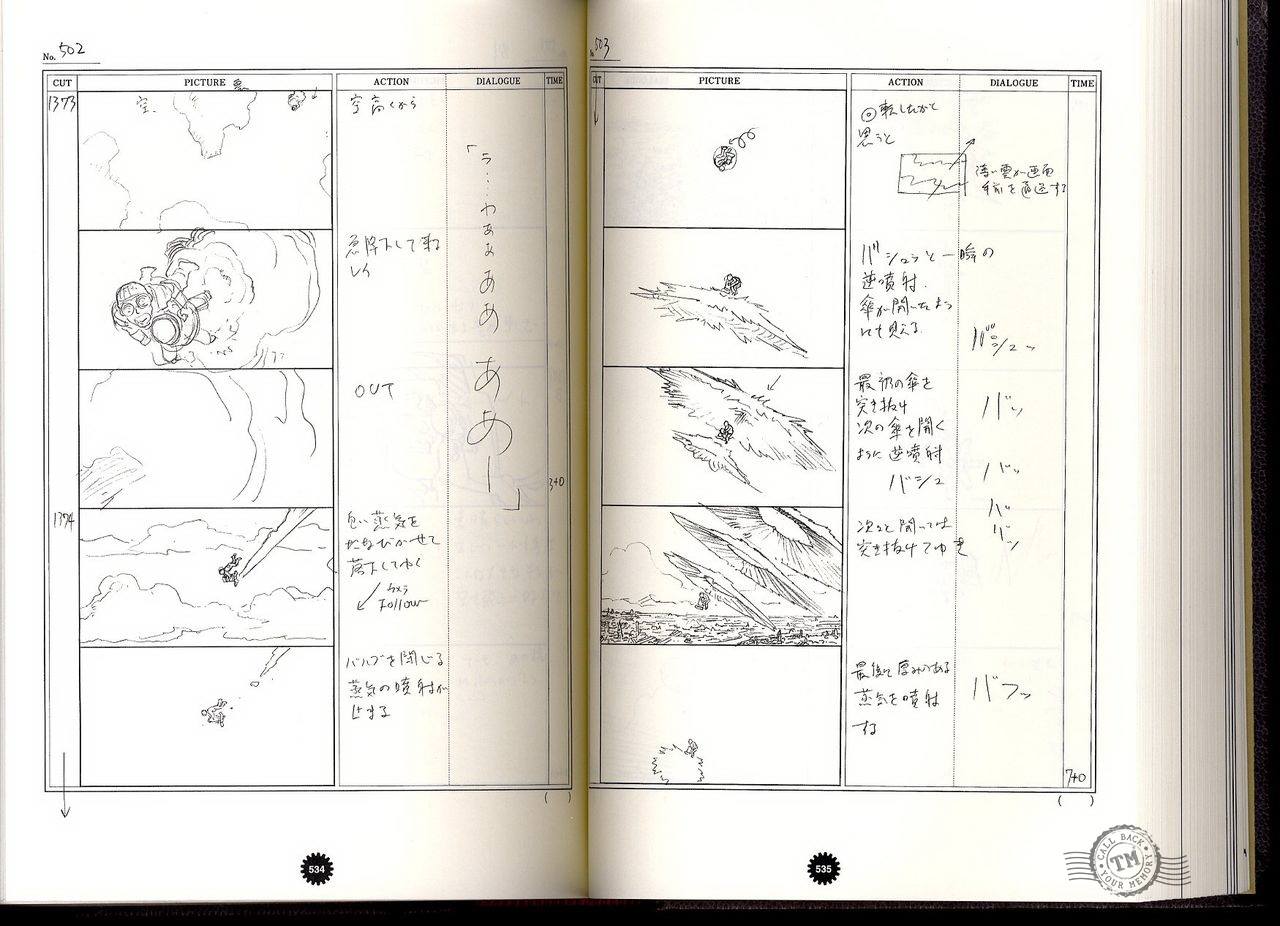 No. 502
CUT
PICTURE
ACTION
DIALOGUE
TIME
1373
空
空高くから
「う…わぁぁぁああああー」
急降下して来る
OUT
3+0
1374
白い蒸気を
たなびかせて
落下してゆく
カメラ
Follow
バルブを閉じる
蒸気の噴射が
止まる
( )
534
503
CUT
PICTURE
ACTION
DIALOGUE
TIME
転したかと
思うと
薄い雲が画面
手前を通過する
バシュッと一瞬の
逆噴射.
傘が開いたよう
にも見える
バシュッ
最初の傘を
突き抜け
次の傘を開く
ように逆噴射
バシュ
バッ
バッ
バ
バン
次々と開いては
突き抜けてゆき
最後に厚みのある
蒸気を噴射
する
バフッ
7+0
( )
535
CALL BACK
TM
YOUR MEMORY